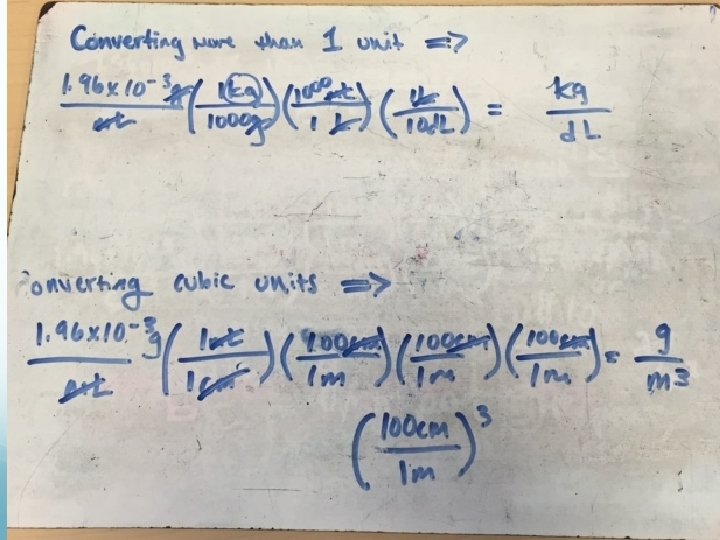 Converting more than 1 unit =>
1.96x10^-3 g / mL (1 kg / 1000g) (1000 mL / 1 L) (1L / 10dL) = kg / dL
onverting cubic units =>
1.96x10^-3 g / mL (1 mL / 1 cm³) (100cm / 1m) (100cm / 1m) (100cm / 1m) = g / m³
(100cm / 1m)³